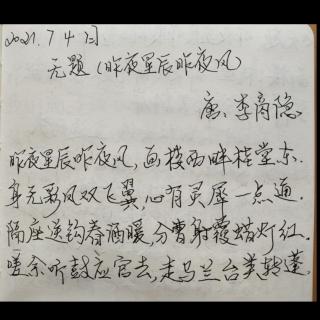 2021.7月4日
无题(昨夜星辰昨夜风)
唐、李商隐
昨夜星辰昨夜风,画楼西畔桂堂东.
身无彩凤双飞翼,心有灵犀一点通.
隔座送钩春酒暖,分曹射覆蜡灯红.
嗟余听鼓应官去,走马兰台类转蓬.